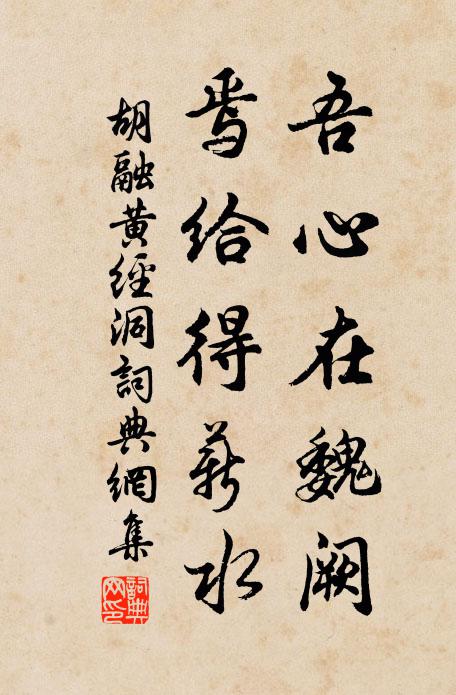 吾心在魏阙
焉给得薪水
胡融黄經洞詞典網集
詞典